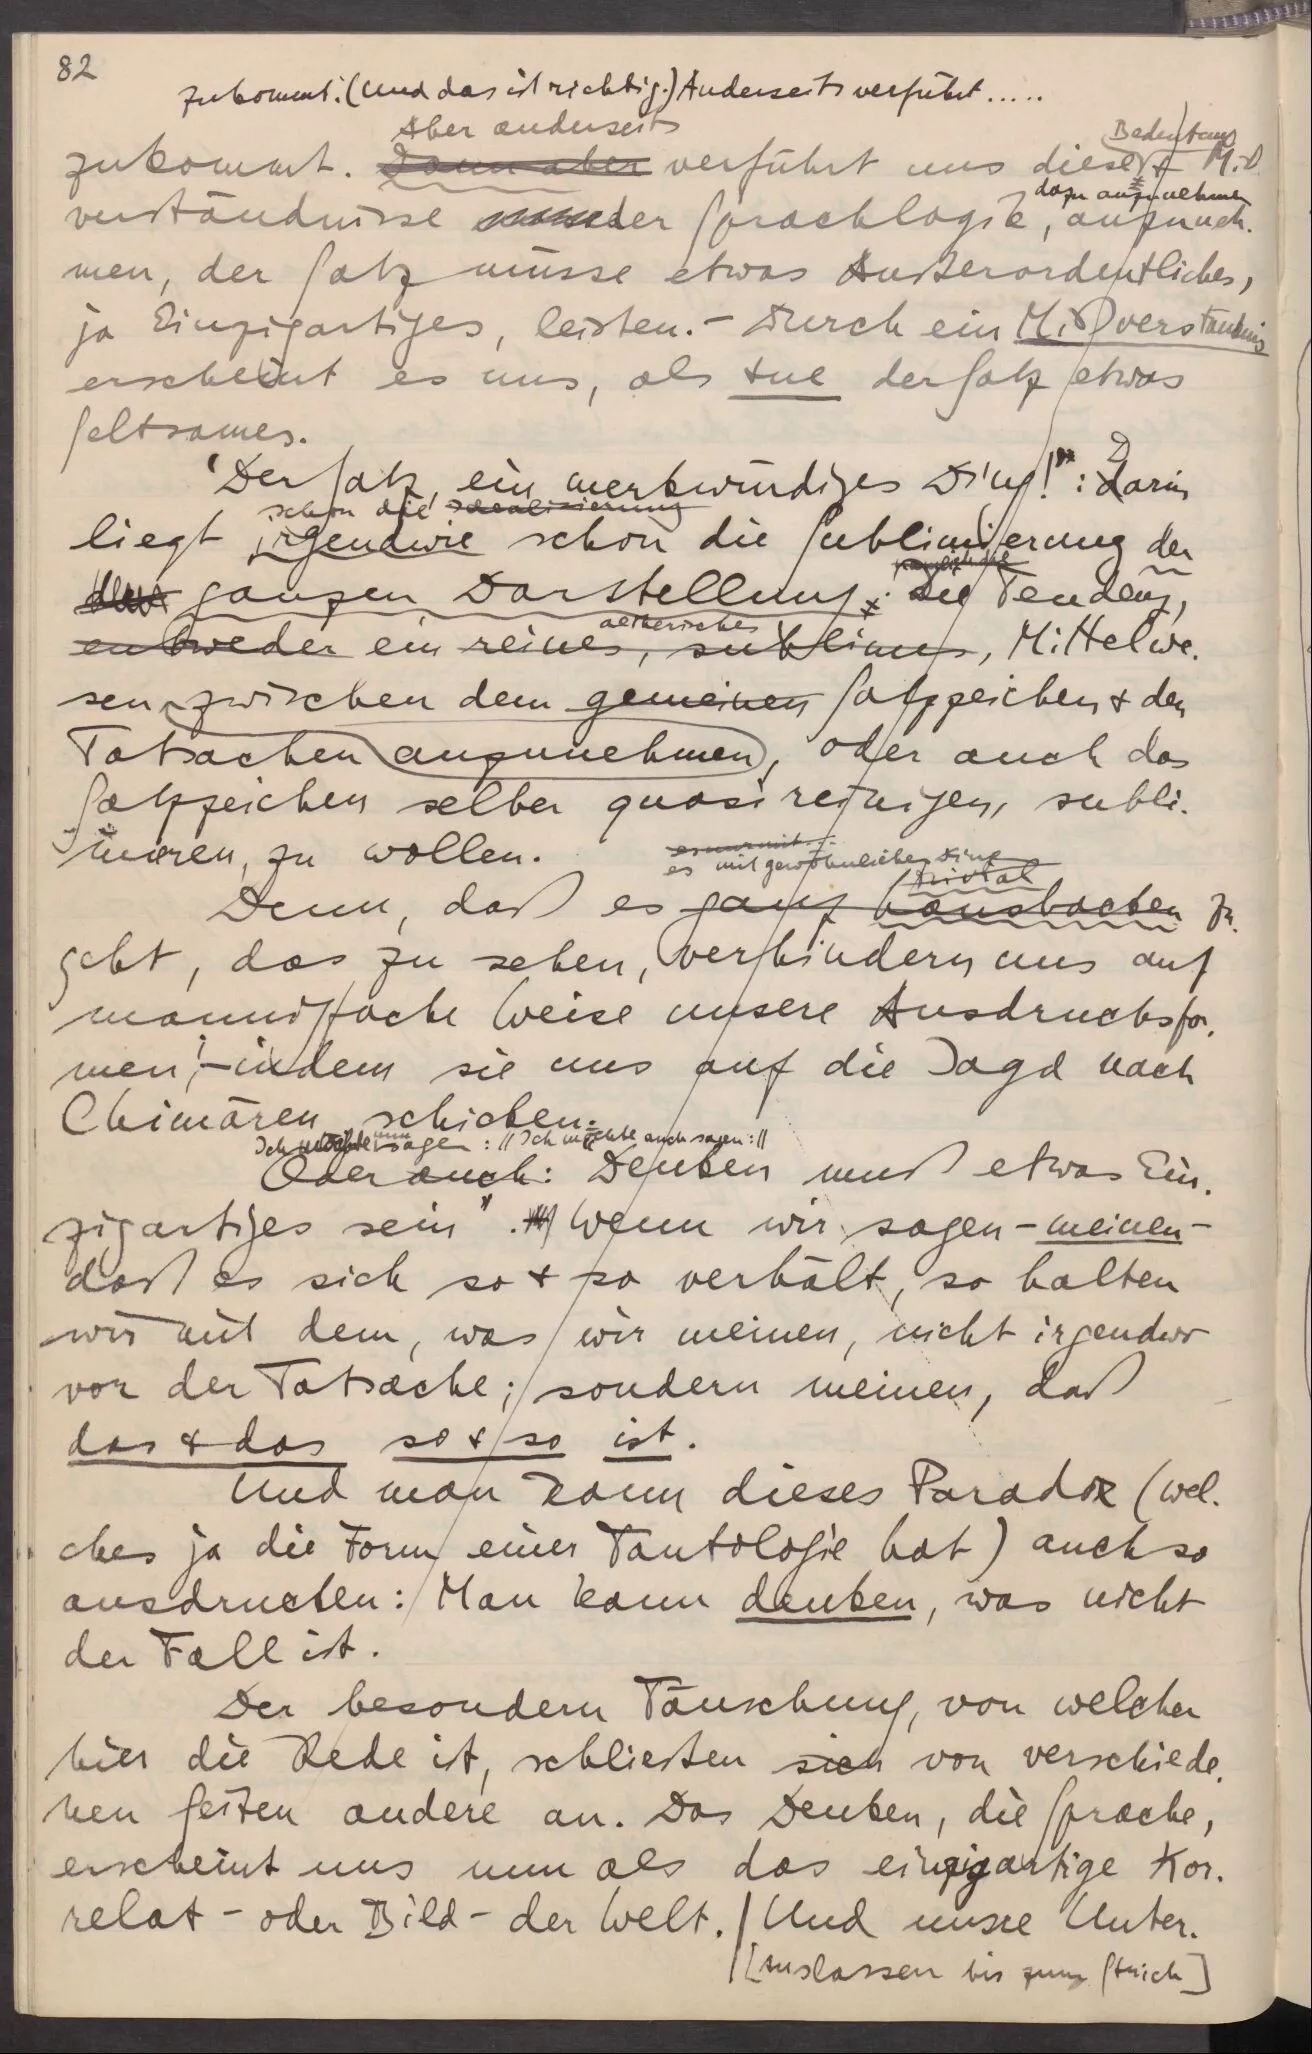 82
zukommt. (Und das ist richtig.) Anderseits verführt .....
Aber anderseits
Bedeutung
zukommt. Dann aber verführt uns diese & Miß-
dazu anzunehmen
verständnisse der Sprachlogik, anzuneh-
men, der Satz müsse etwas Außerordentliches,
ja Einzigartiges, leisten. – Durch ein Mißverständnis
erscheint es uns, als tue der Satz etwas
Seltsames.
'Der Satz, ein merkwürdiges Ding!': Darin
schon die Idealisierung
liegt irgendwie schon die Sublimierung der
ganzen Darstellung. Die Tendenz,
aetherisches
entweder ein reines, sublimes, Mittelwe-
sen zwischen dem gemeinen Satzzeichen & den
Tatsachen anzunehmen, oder auch das
Satzzeichen selber quasi reinigen, subli-
mieren, zu wollen.
es nur mit ...
es mit gewöhnlichen Dingen
trivial
Denn, daß es ganz hausbacken zu-
geht, das zu sehen, verhindern uns auf
mannigfache Weise unsere Ausdrucksfor-
men; – indem sie uns auf die Jagd nach
Chimären schicken.
Ich möchte nun sagen: // Ich möchte auch sagen: //
Oder auch: Denken muß etwas Ein-
zigartiges sein". Wenn wir sagen – meinen –
daß es sich so & so verhält, so halten
wir mit dem, was wir meinen, nicht irgendwo
vor der Tatsache; sondern meinen, daß
das & das so & so ist.
Und man kann dieses Paradox (wel-
ches ja die Form einer Tautologie hat) auch so
ausdrucken: Man kann denken, was nicht
der Fall ist.
Der besondern Täuschung, von welcher
hier die Rede ist, schließen sich von verschiede-
nen Seiten andere an. Das Denken, die Sprache,
erscheint uns nun als das einzigartige Kor-
relat – oder Bild – der Welt. / Und unsre Unter-
[Auslassen bis zum Strich]